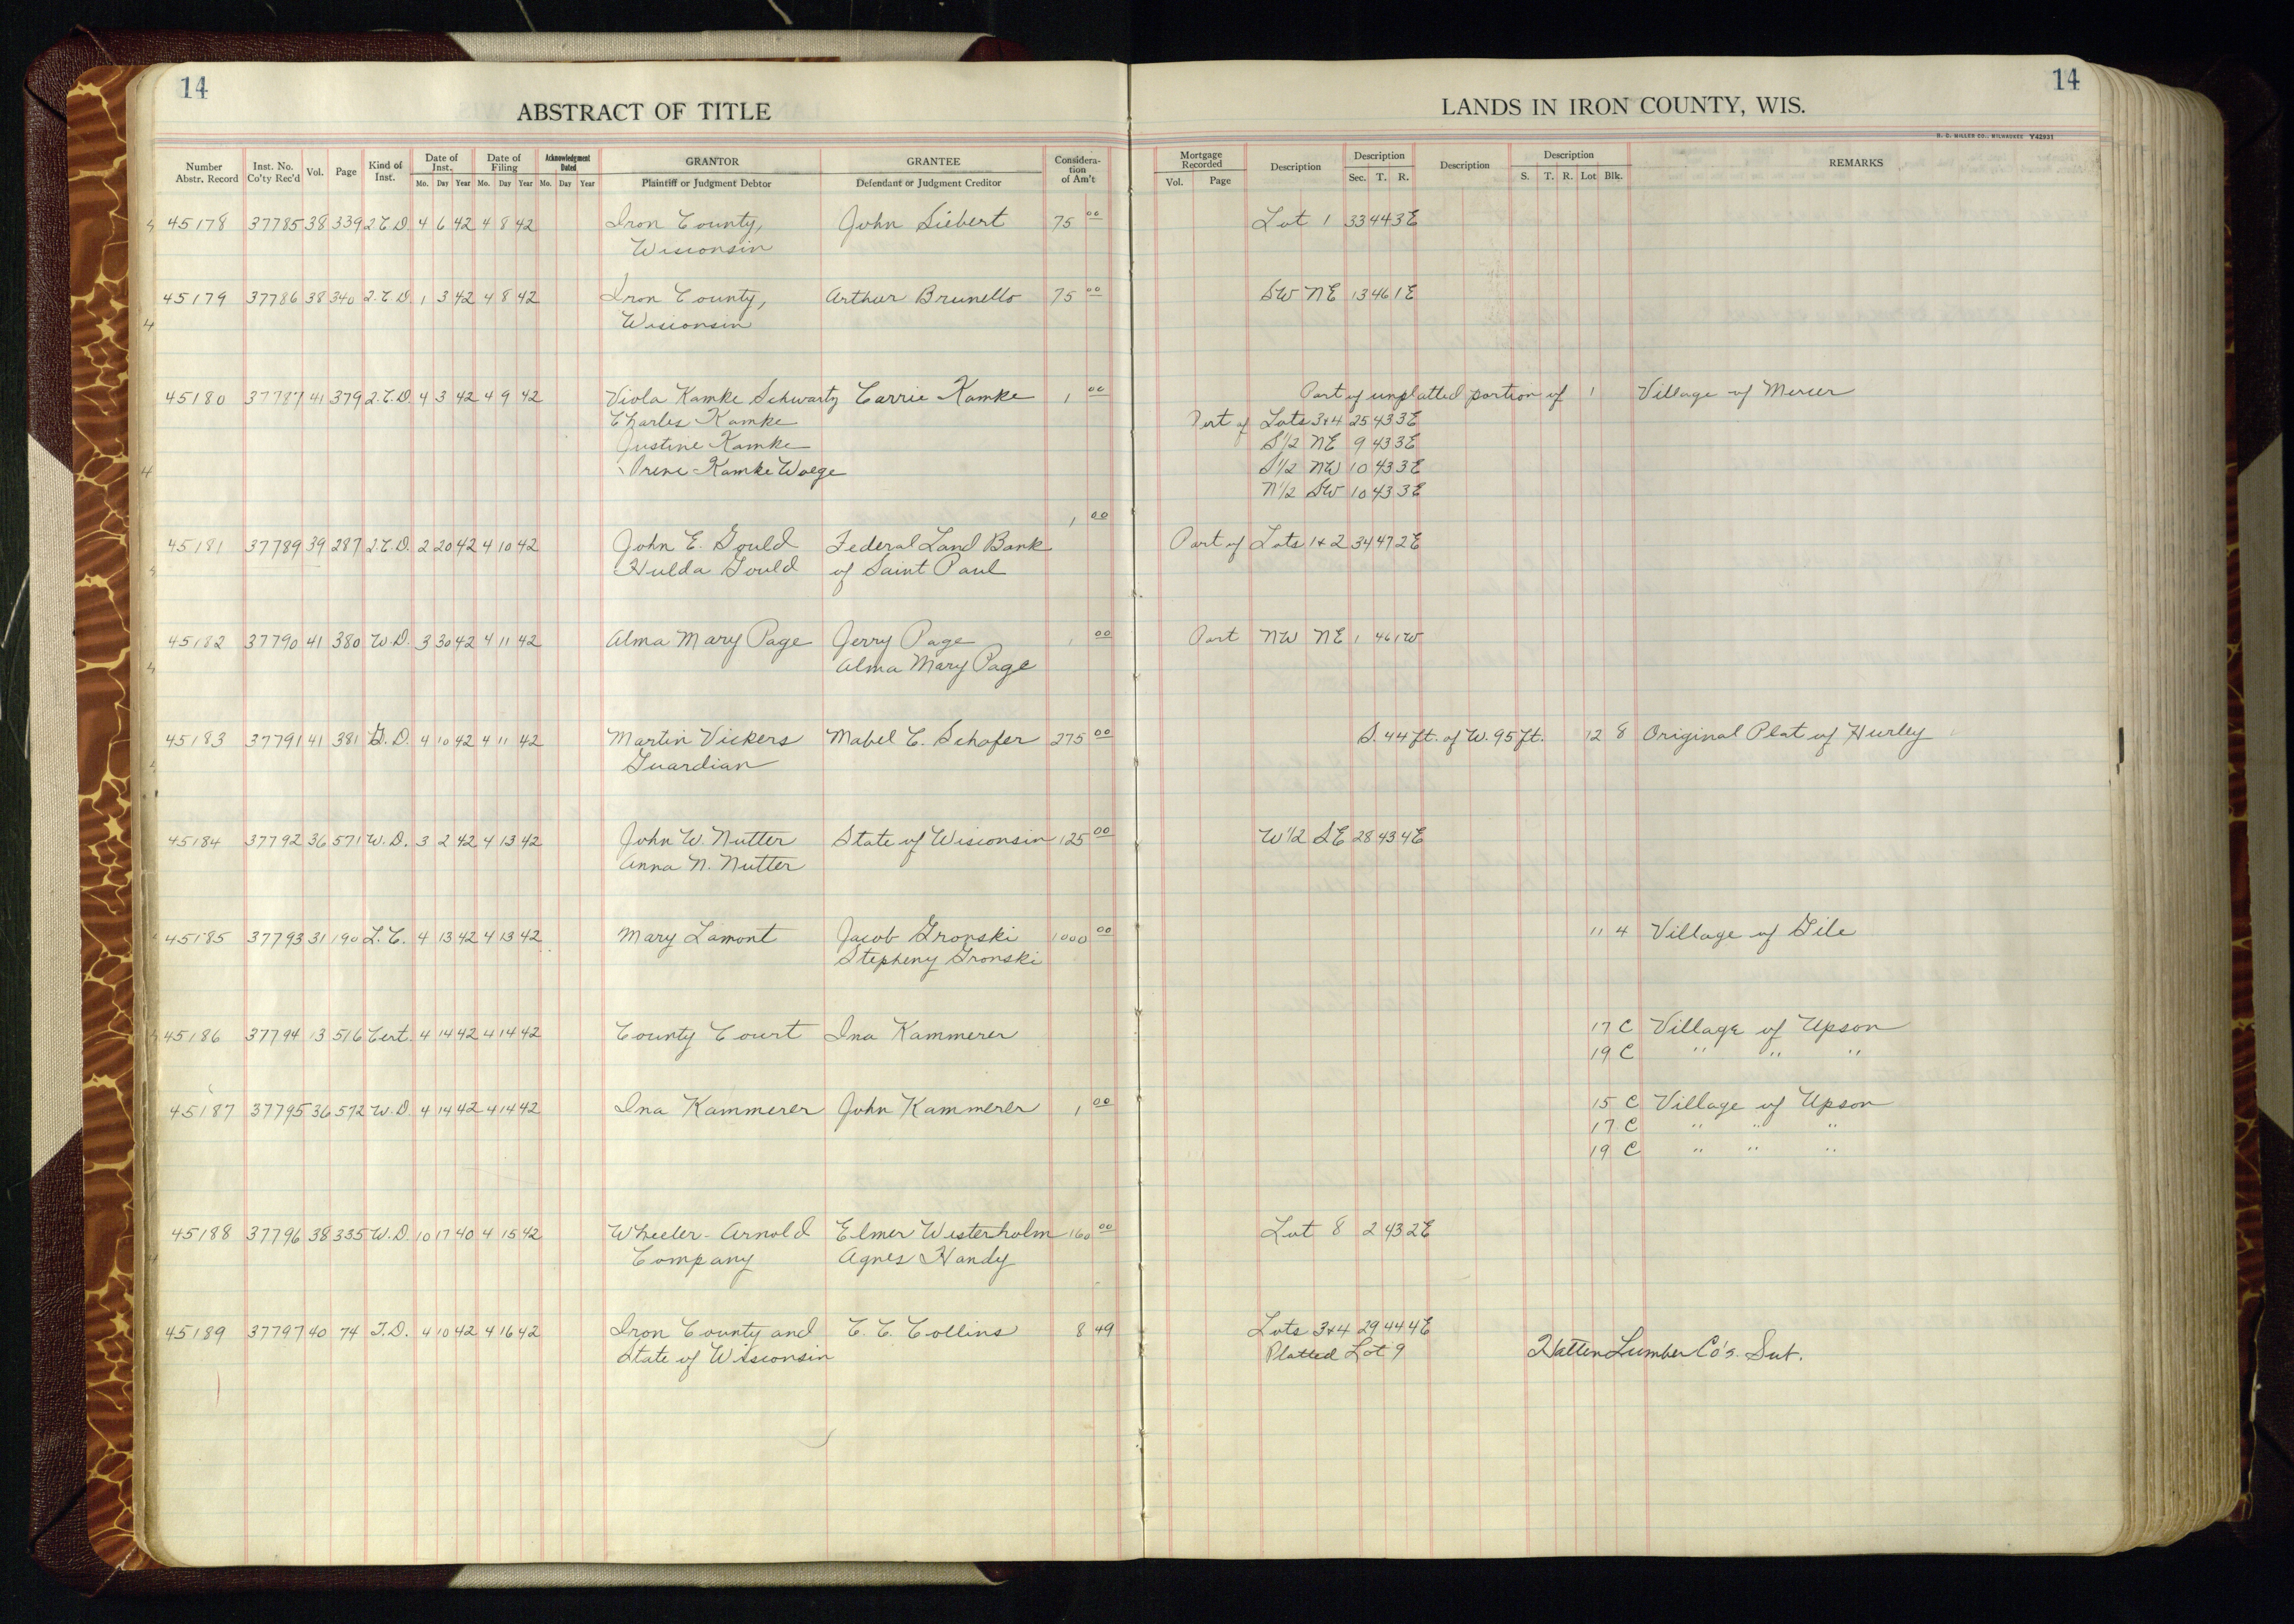 14
14
ABSTRACT OF TITLE
LANDS IN IRON COUNTY, WIS.
H. C. MILLER CO., MILWAUKEE Y42931
Number Abstr. Record Inst. No. Co'ty Rec'd Vol. Page Kind of Inst. Date of Inst. Mo. Day Year Date of Filing Mo. Day Year Acknowledgment Dated Mo. Day Year GRANTOR Plaintiff or Judgment Debtor GRANTEE Defendant or Judgment Creditor Considera-tion of Am't Mortgage Recorded Vol. Page Description Description Sec. T. R. Description Description S. T. R. Lot Blk. REMARKS
45178 37785 38 339 2.C.D. 4 6 42 4 8 42 Iron County, John Siebert 75 00 Lot 1 33 44 3E
Wisconsin
45179 37786 38 340 2.C.D. 1 3 42 4 8 42 Iron County, Arthur Brunello 75 00 SW NE 13 46 1E
Wisconsin
45180 37787 41 379 2.C.D. 4 3 42 4 9 42 Viola Kamke Schwartz Carrie Kamke 1 00 Part of unplatted portion of 1 Village of Mercer
Charles Kamke Part of Lots 3+4 25 43 3E
Justine Kamke S1/2 NE 9 43 3E
Irene Kamke Woege S1/2 NW 10 43 3E
N1/2 SW 10 43 3E
1 00
45181 37789 39 287 2.C.D. 2 20 42 4 10 42 John E. Gould Federal Land Bank Part of Lots 1+2 34 47 2E
Hulda Gould of Saint Paul
45182 37790 41 380 W.D. 3 30 42 4 11 42 Alma Mary Page Jerry Page 1 00 Part NW NE 1 46 1W
Alma Mary Page
45183 37791 41 381 G.D. 4 10 42 4 11 42 Martin Vickers Mabel C. Schafer 275 00 S. 44 ft. of W. 95 ft. 12 8 Original Plat of Hurley
Guardian
45184 37792 36 571 W.D. 3 2 42 4 13 42 John W. Nutter State of Wisconsin 125 00 W1/2 SE 28 43 4E
Anna N. Nutter
45185 37793 31 190 L.C. 4 13 42 4 13 42 Mary Lamont Jacob Gronski 1000 00 11 4 Village of Gile
Stepheny Gronski
45186 37794 13 516 Cert. 4 14 42 4 14 42 County Court Ina Kammerer 17 C Village of Upson
19 C " " "
45187 37795 36 572 W.D. 4 14 42 4 14 42 Ina Kammerer John Kammerer 1 00 15 C Village of Upson
17 C " " "
19 C " " "
45188 37796 38 335 W.D. 10 17 40 4 15 42 Wheeler-Arnold Elmer Westerholm 160 00 Lot 8 2 43 2E
Company Agnes Handy
45189 37797 40 74 T.D. 4 10 42 4 16 42 Iron County and C. C. Collins 8 49 Lots 3+4 29 44 4E
State of Wisconsin Platted Lot 9 Hatten Lumber Co's. Sub.